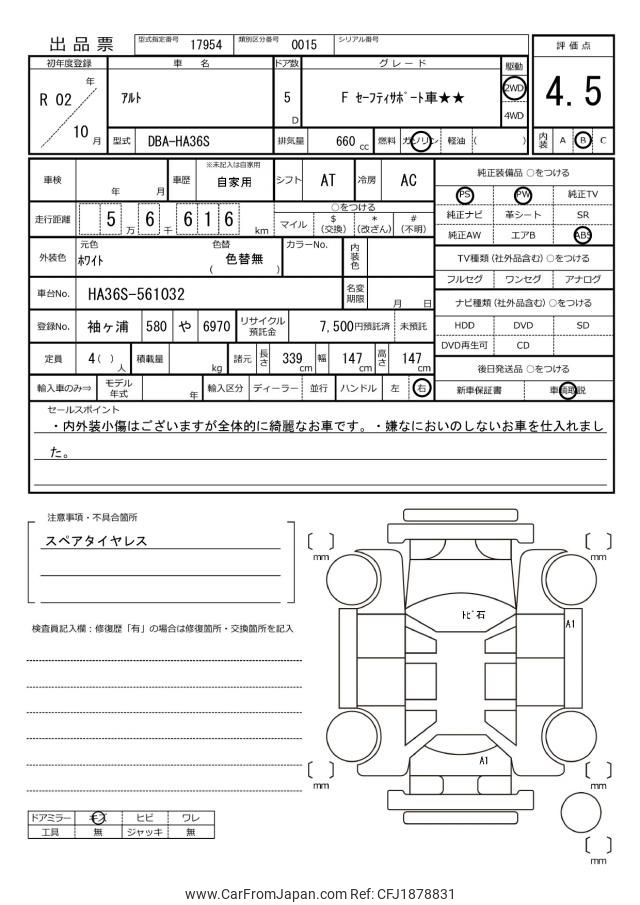 出品票
型式指定番号 17954 類別区分番号 0015 シリアル番号
評価点
4.5
内装 A B C
初年度登録 車名 ドア数 グレード 駆動
R 02 年 10 月
ｱﾙﾄ
5 D
F ｾｰﾌﾃｨｻﾎﾟｰﾄ車★★
2WD
4WD
型式 DBA-HA36S 排気量 660 cc 燃料 ガソリン 軽油 ( )
車検 年 月 車歴 ※未記入は自家用 自家用 シフト AT 冷房 AC
走行距離 5 万 6 千 6 1 6 km
○をつける
マイル $ (交換) * (改ざん) # (不明)
外装色 元色 ﾎﾜｲﾄ 色替 ( 色替無 ) カラーNo. 内装色
車台No. HA36S-561032 名変期限 月 日
登録No. 袖ヶ浦 580 や 6970 リサイクル預託金 7,500円預託済 未預託
定員 4 ( ) 人 積載量 kg 諸元 長さ 339 cm 幅 147 cm 高さ 147 cm
輸入車のみ⇒ モデル年式 年 輸入区分 ディーラー 並行 ハンドル 左 右
純正装備品 ○をつける
PS PW 純正TV
純正ナビ 革シート SR
純正AW エアB ABS
TV種類 (社外品含む) ○をつける
フルセグ ワンセグ アナログ
ナビ種類 (社外品含む) ○をつける
HDD DVD SD
DVD再生可 CD
後日発送品 ○をつける
新車保証書 車輌取説
セールスポイント
・内外装小傷はございますが全体的に綺麗なお車です。・嫌なにおいのしないお車を仕入れまし
た。
注意事項・不具合箇所
スペアタイヤレス
検査員記入欄：修復歴「有」の場合は修復箇所・交換箇所を記入
mm
mm
ﾄﾋﾞ石
A1
A1
mm
mm
mm
ドアミラー キズ ヒビ ワレ
工具 無 ジャッキ 無
www.CarFromJapan.com Ref: CFJ1878831